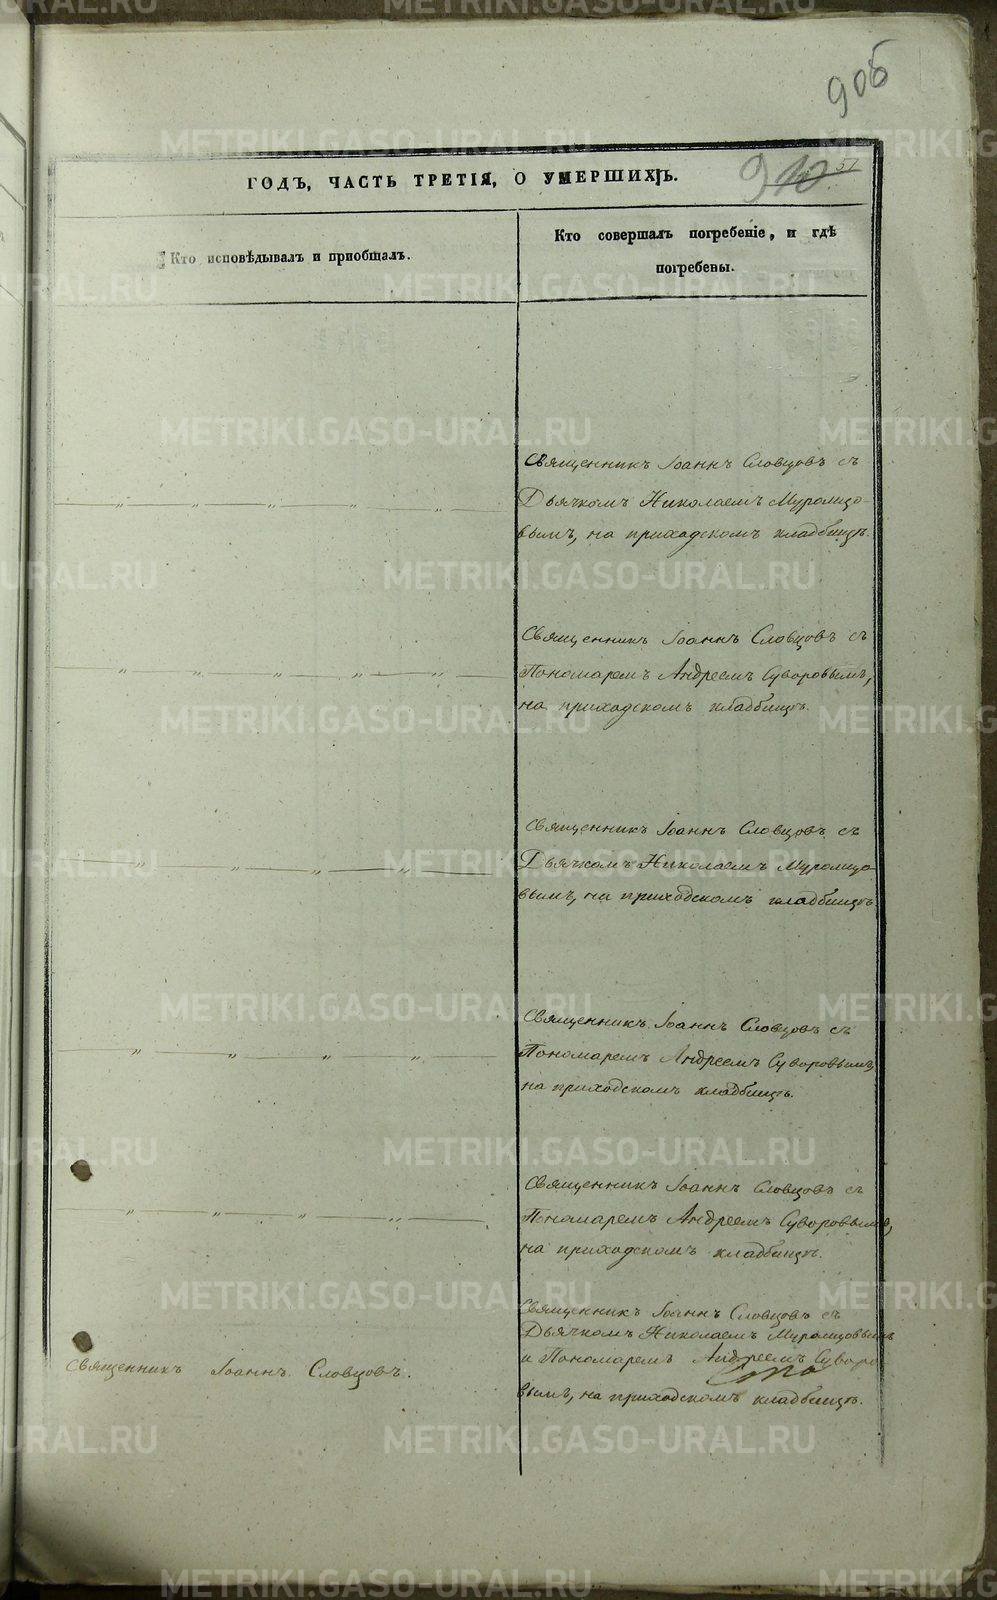 906
910
51
ГОДЪ, ЧАСТЬ ТРЕТІЯ, О УМЕРШИХЪ.
Кто исповѣдывалъ и пріобщалъ.
Кто совершалъ погребеніе, и гдѣ
погребены.
Священникъ Іоаннъ Словцовъ съ
Дьячкомъ Николаемъ Муромцо-
вымъ, на приходскомъ кладбищѣ.
Священникъ Іоаннъ Словцовъ съ
Пономаремъ Андреемъ Суворовымъ,
на приходскомъ кладбищѣ.
Священникъ Іоаннъ Словцовъ съ
Дьячкомъ Николаемъ Муромцо-
вымъ, на приходскомъ кладбищѣ.
Священникъ Іоаннъ Словцовъ съ
Пономаремъ Андреемъ Суворовымъ,
на приходскомъ кладбищѣ.
Священникъ Іоаннъ Словцовъ съ
Пономаремъ Андреемъ Суворовымъ,
на приходскомъ кладбищѣ.
Священникъ Іоаннъ Словцовъ.
Священникъ Іоаннъ Словцовъ съ
Дьячкомъ Николаемъ Муромцовымъ
и Пономаремъ Андреемъ Суворо
вымъ, на приходскомъ кладбищѣ.
METRIKI.GASO-URAL.RU